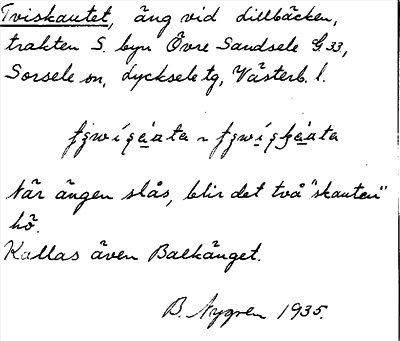 Tviskautet, äng vid dillbäcken,
trakten S. byn Övre Sandsele G 33,
Sorsele sn, Lycksele tg, Västerb. l.
När ängen slås, blir det två "skauten"
hö.
Kallas även Balkänget.
B. Nygren 1935.